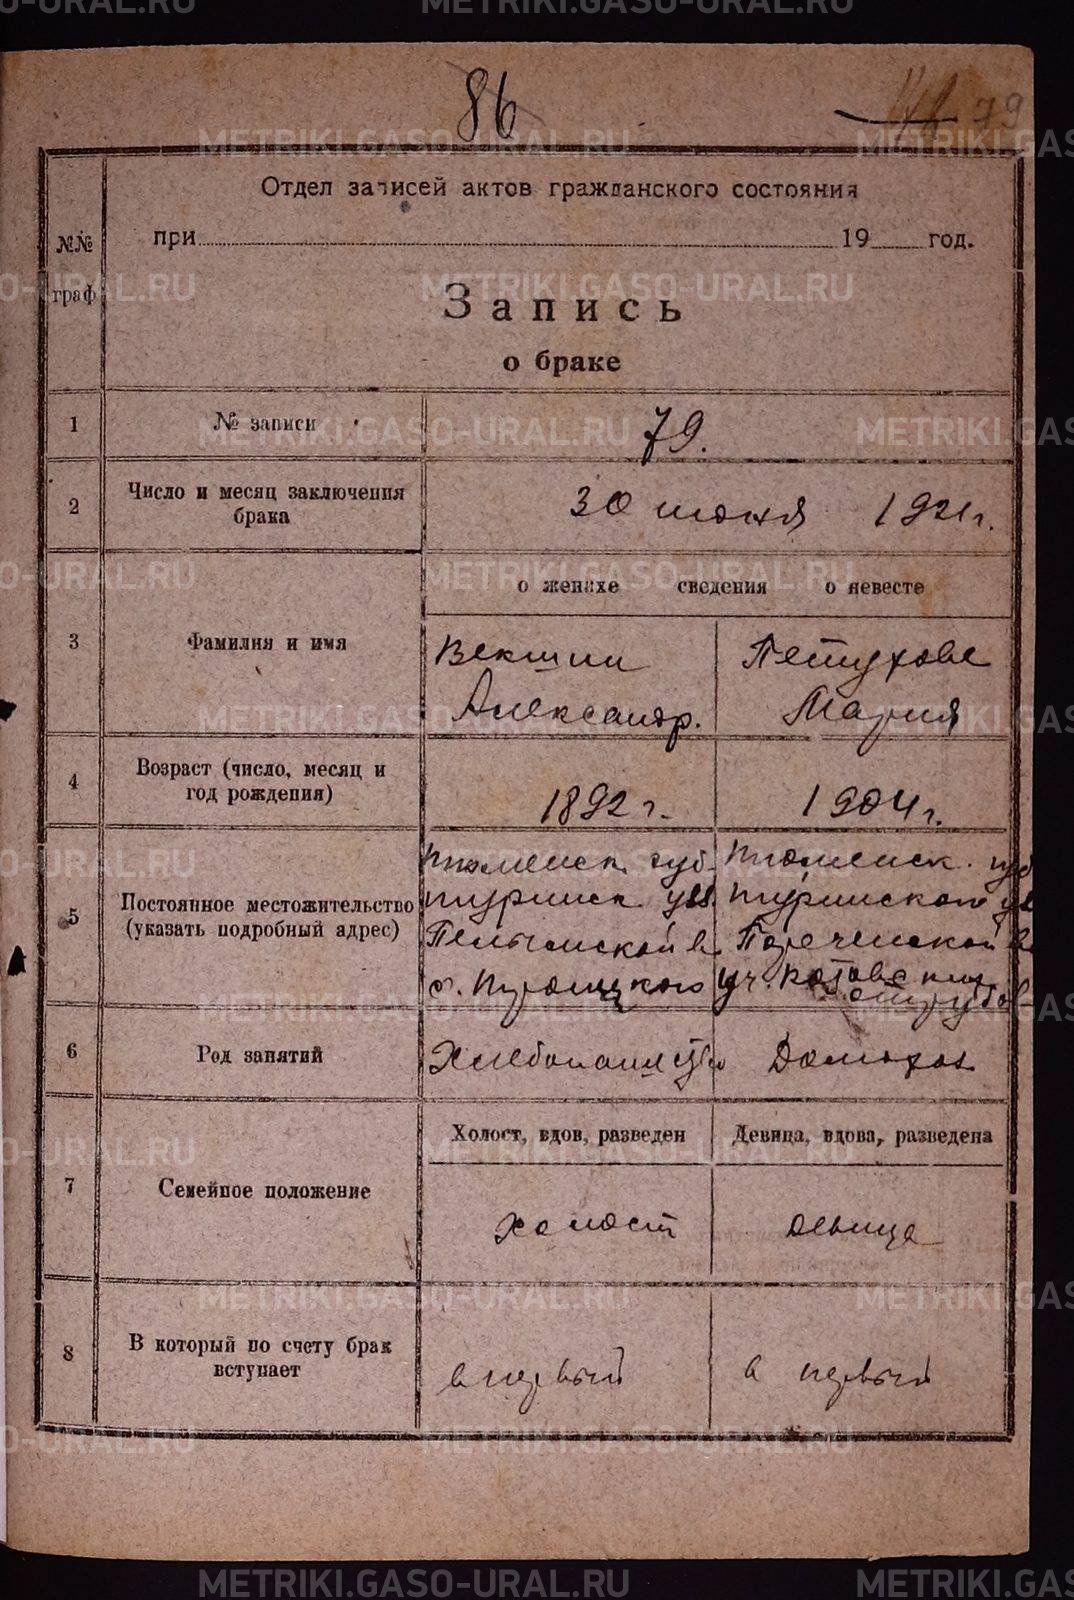 86
79
Отдел записей актов гражданского состояния
при 19 год.
№№
граф
Запись
о браке
1 № записи 79.
2 Число и месяц заключения
брака
30 июня 1921 г.
о женихе сведения о невесте
3 Фамилия и имя
Векшин Петухова
Александр. Мария
4 Возраст (число, месяц и
год рождения)
1892 г. 1904 г.
5 Постоянное местожительство
(указать подробный адрес)
Тюменск. губ. Тюменск. губ
Туринск. уез. Туринского уе
Пелымской в. в
с. уч.
6 Род занятий Домохоз
7 Семейное положение
Холост, вдов, разведен Девица, вдова, разведена
холост девица
8 В который по счету брак
вступает
в первый в первый
METRIKI.GASO-URAL.RU